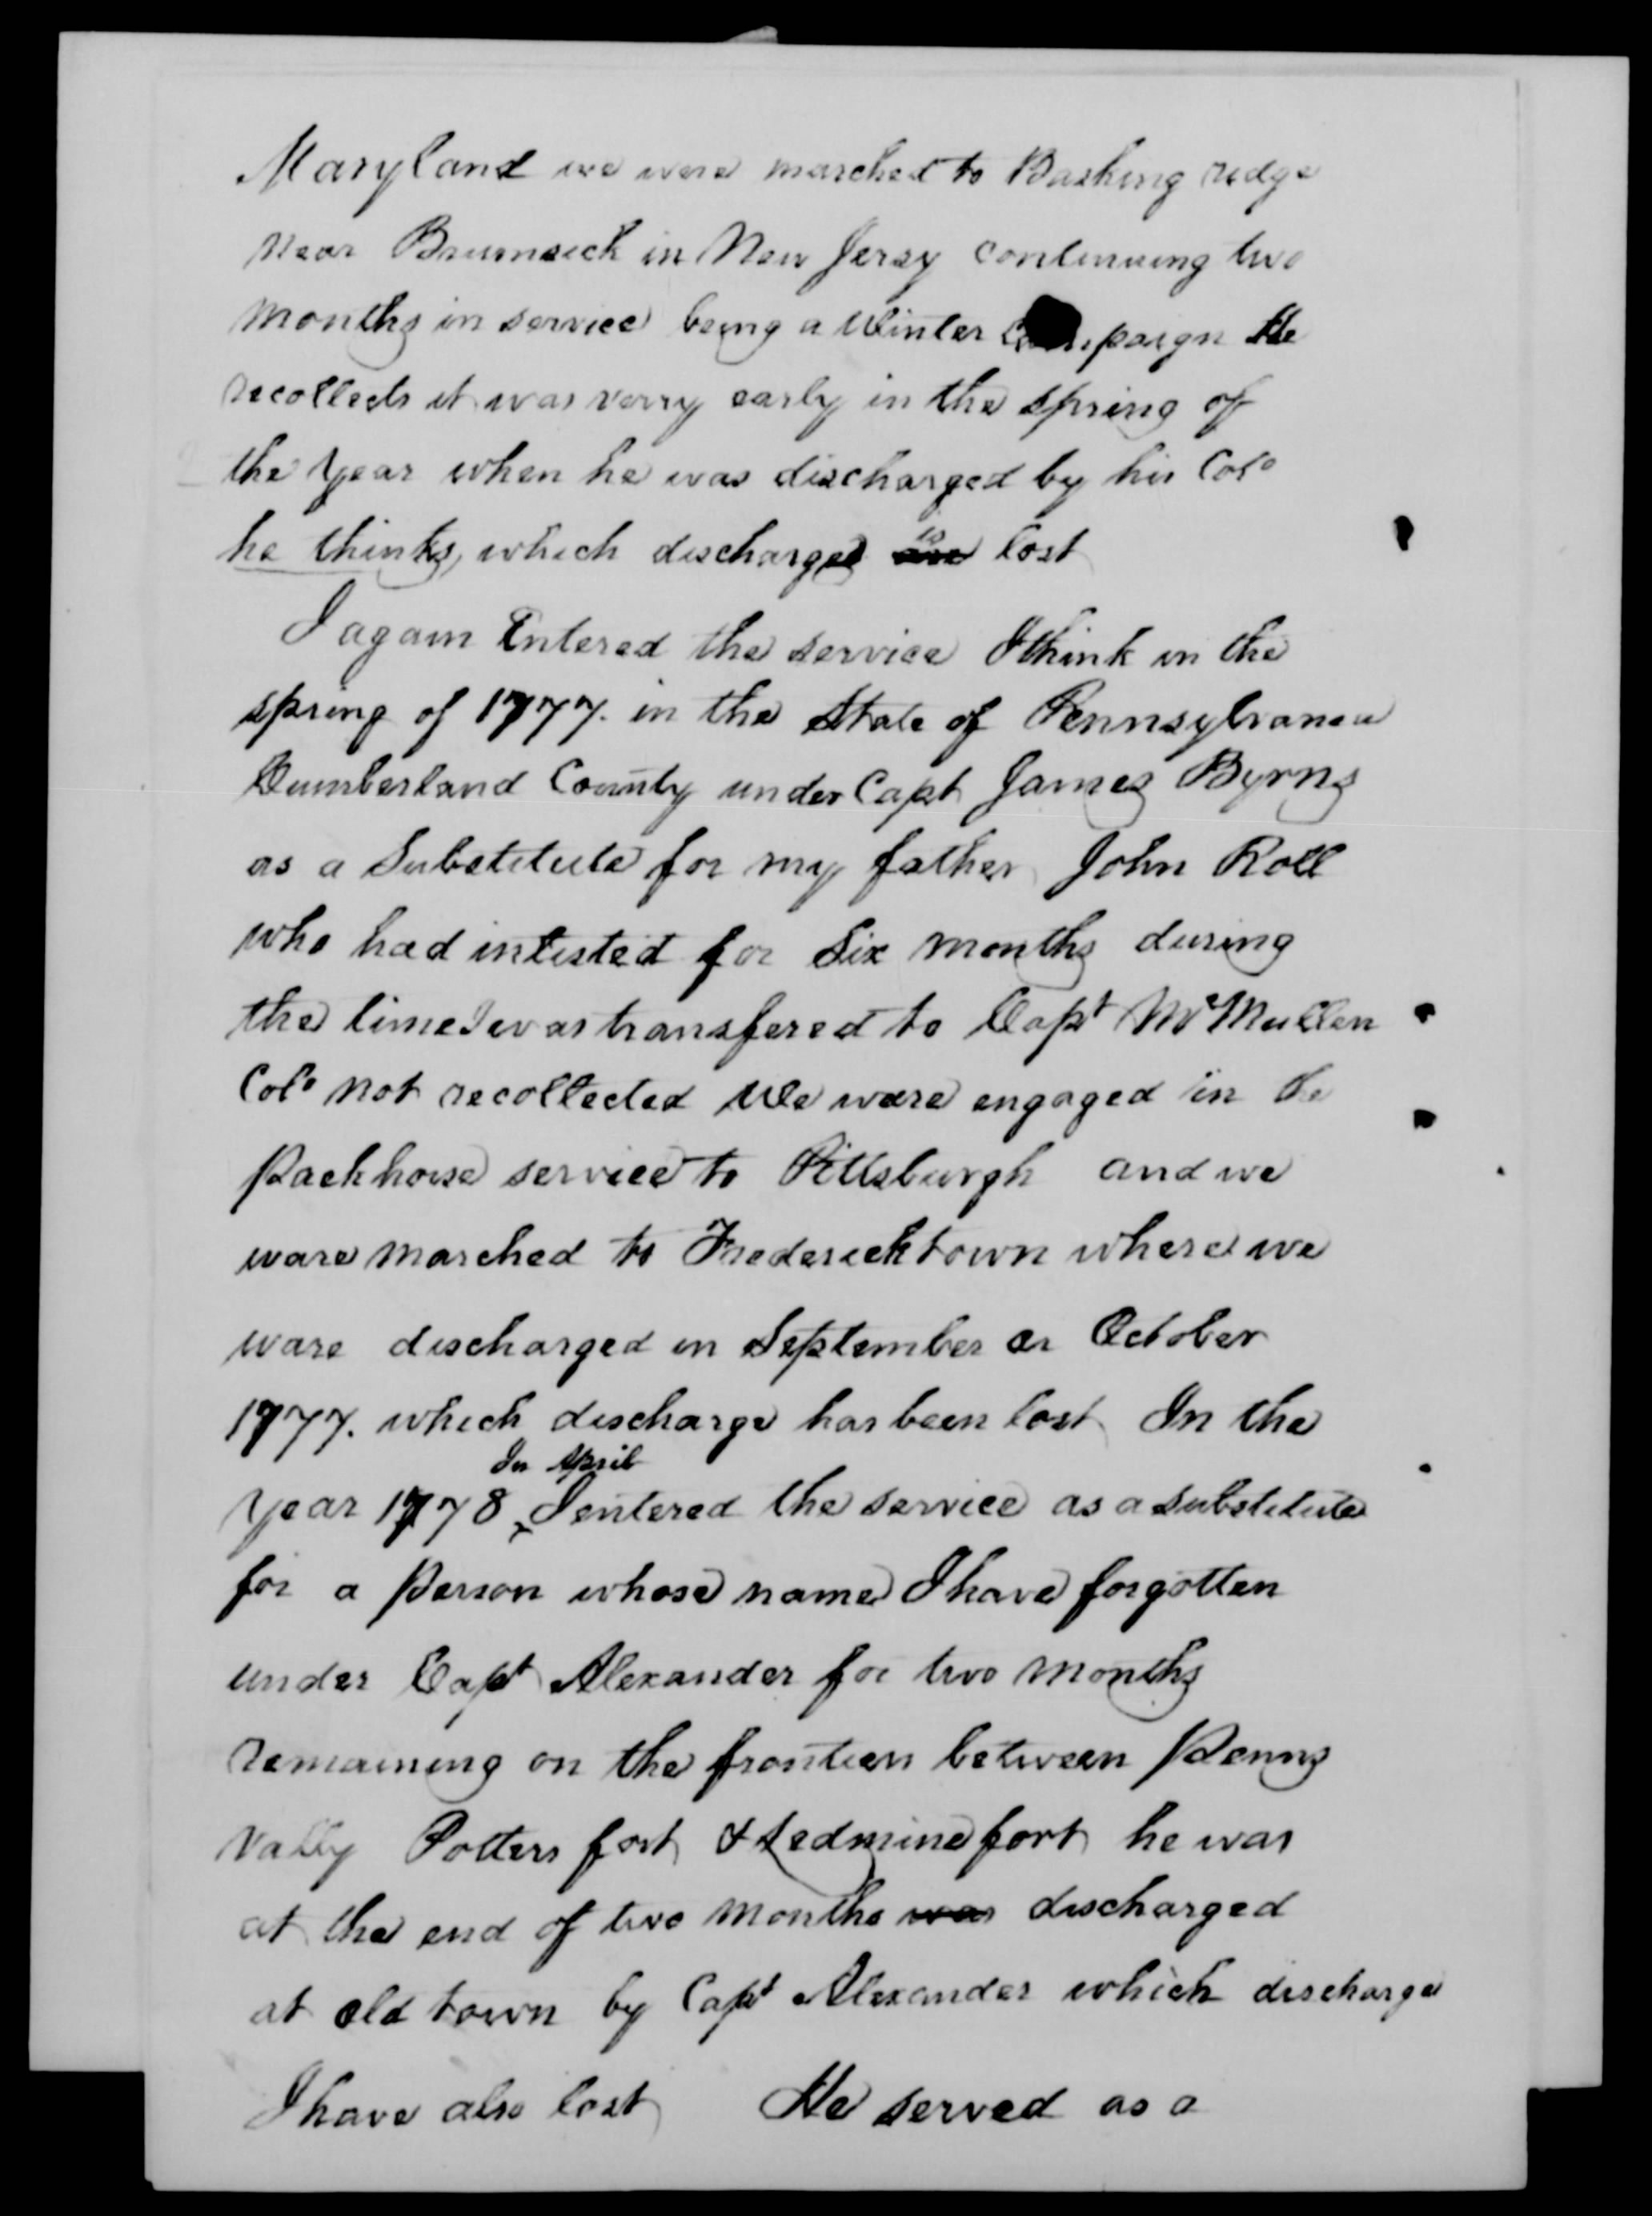 Maryland we were marched to Basking ridge
Near Brumsick in New Jersy continuing two
months in service being a Winter Campaign He
recollects it was verry early in the spring of
the year when he was discharged by his Colo
he thinks, which discharge is lost
I again Entered the service I think in the
spring of 1777. in the State of Pennsylvania
Cumberland County under Capt James Byrns
as a Substitute for my father John Roll
who had inlisted for Six months during
the time I was transfered to Capt McMullen
Colo not recollected We ware engaged in the
Packhorse service to Pittsburgh and we
ware marched to Fredericktown where we
ware discharged in September or October
1777. which discharge has been lost In the
In April
year 1778 I entered the service as a substitute
for a Person whose name I have forgotten
under Capt Alexander for two months
remaining on the frontiers between Penns
Vally Potters fort & Ledmine fort he was
at the end of two months was discharged
at old town by Capt Alexander which discharge
I have also lost He served as a